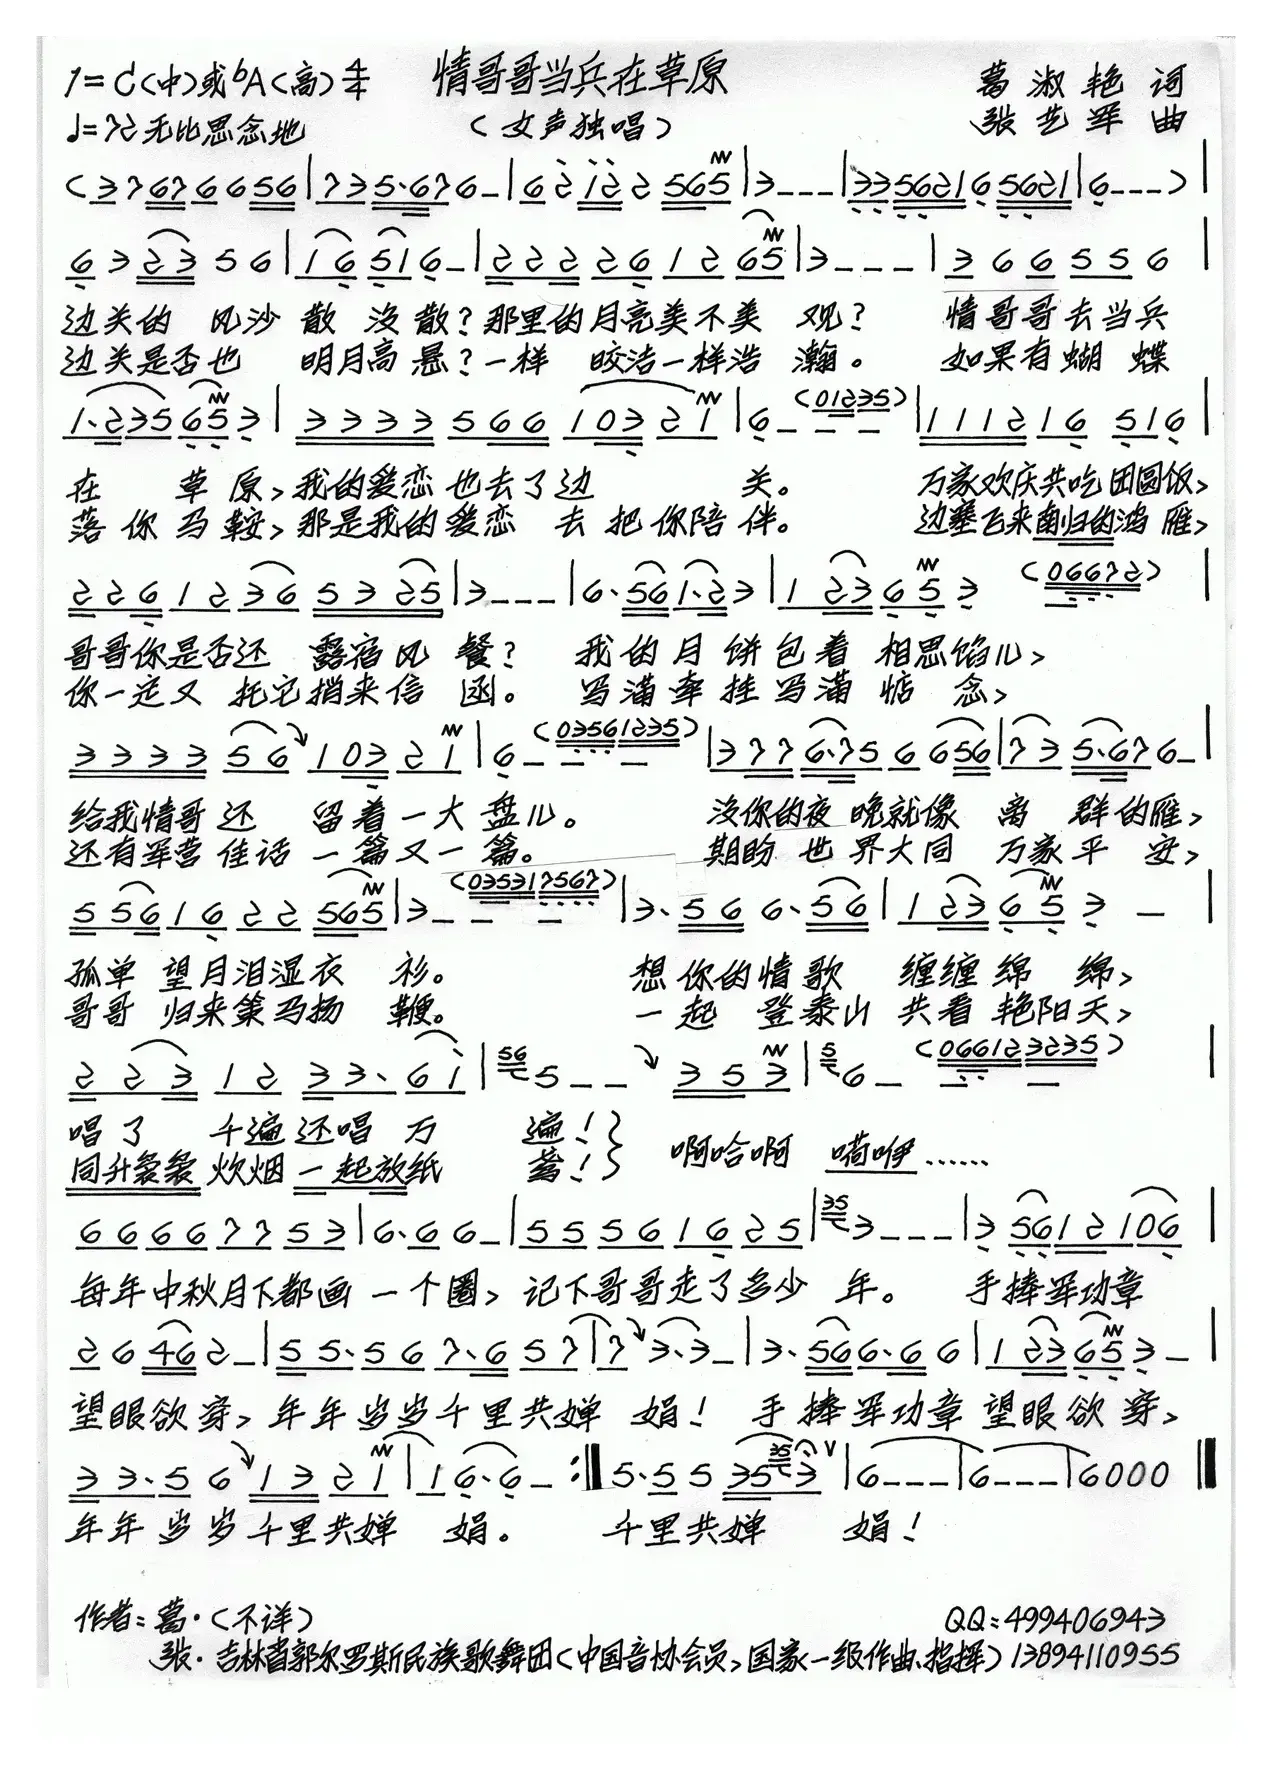 1=C(中)或bA(高)4/4 情哥哥当兵在草原 葛淑艳 词
♩=72 无比思念地 (女声独唱) 张艺军 曲
(3 7 6 7 6 6 5 6 | 7 3 5·6 7 6 – | 6 2 1 2 2 5 6 5 | 3 – – – | 3 3 5 6 2 1 6 5 6 2 1 | 6 – – –) |
6 3 2 3 5 6 | 1 6 5 1 6 – | 2 2 2 2 6 1 2 6 5 | 3 – – – | 3 6 6 5 5 6 |
边关的 风沙 散 没散?那里的月亮美不美 观? 情哥哥去当兵
边关是否也 明月高 悬?一样 皎洁一样浩 瀚。 如果有蝴 蝶
1·2 3 5 6 5 3 | 3 3 3 3 5 6 6 1 0 3 2 1 | 6 – – – (0 1 2 3 5) | 1 1 1 2 1 6 5 1 6 |
在 草 原,我的爱恋也去了边 关。 万家欢庆共吃团圆饭,
落你马鞍,那是我的爱恋 去把你陪 伴。 边塞飞来南归的鸿 雁,
2 2 6 1 2 3 6 5 3 2 5 | 3 – – – | 6·5 6 1·2 3 | 1 2 3 6 5 3 (0 6 6 7 2) |
哥哥你是否还 露宿风 餐? 我的月饼包着 相思馅儿,
你一定又 托它捎来信 函。 写满牵挂写满 惦 念,
3 3 3 3 5 6 1 0 3 2 1 | 6 – – – (0 3 5 6 1 2 3 5) | 3 7 7 6·7 5 6 6 5 6 | 7 3 5·6 7 6 – |
给我情哥还 留着一大盘儿。 没你的夜 晚就像 离 群的雁,
还有军营 佳话 一篇又一 篇。 期盼 世界大同 万家平 安,
5 5 6 1 6 2 2 5 6 5 | 3 – – – (0 3 5 3 1 7 5 6 7) | 3·5 6 6·5 6 | 1 2 3 6 5 3 – |
孤单 望月泪湿衣 衫。 想你的情歌 缠缠绵 绵,
哥哥 归来策马扬 鞭。 一起 登泰山 共看 艳阳天,
2 2 3 1 2 3 3·6 1 | 56 5 – – 3 5 3 | 5 6 – (0 6 6 1 2 3 2 3 5) – |
唱了 千遍还唱 万 遍!} 啊哈啊 嗬咿……
同升袅袅 炊烟 一起放纸 鸢!}
6 6 6 6 7 7 5 3 | 6·6 6 – | 5 5 5 6 1 6 2 5 | 35 3 – – – | 3 5 6 1 2 1 0 6 |
每年中秋月下都画 一个圈,记下哥哥走了多少 年。 手捧军功章
2 6 4 6 2 – | 5 5·5 6 7·6 5 7 | 7 3·3 – | 3·5 6 6·6 6 | 1 2 3 6 5 3 – |
望眼欲穿,年年岁岁千里共婵 娟! 手捧军功章望眼欲 穿,
3 3·5 6 1 3 2 1 | 1 6·6 – :‖ 5·5 5 3 5 35 3 V | 6 – – – | 6 – – – | 6 0 0 0 ‖
年年岁岁千里共婵 娟。 千里共婵 娟!
作者:葛·(不详) QQ:499406943
张·吉林省郭尔罗斯民族歌舞团(中国音协会员,国家一级作曲、指挥)13894110955